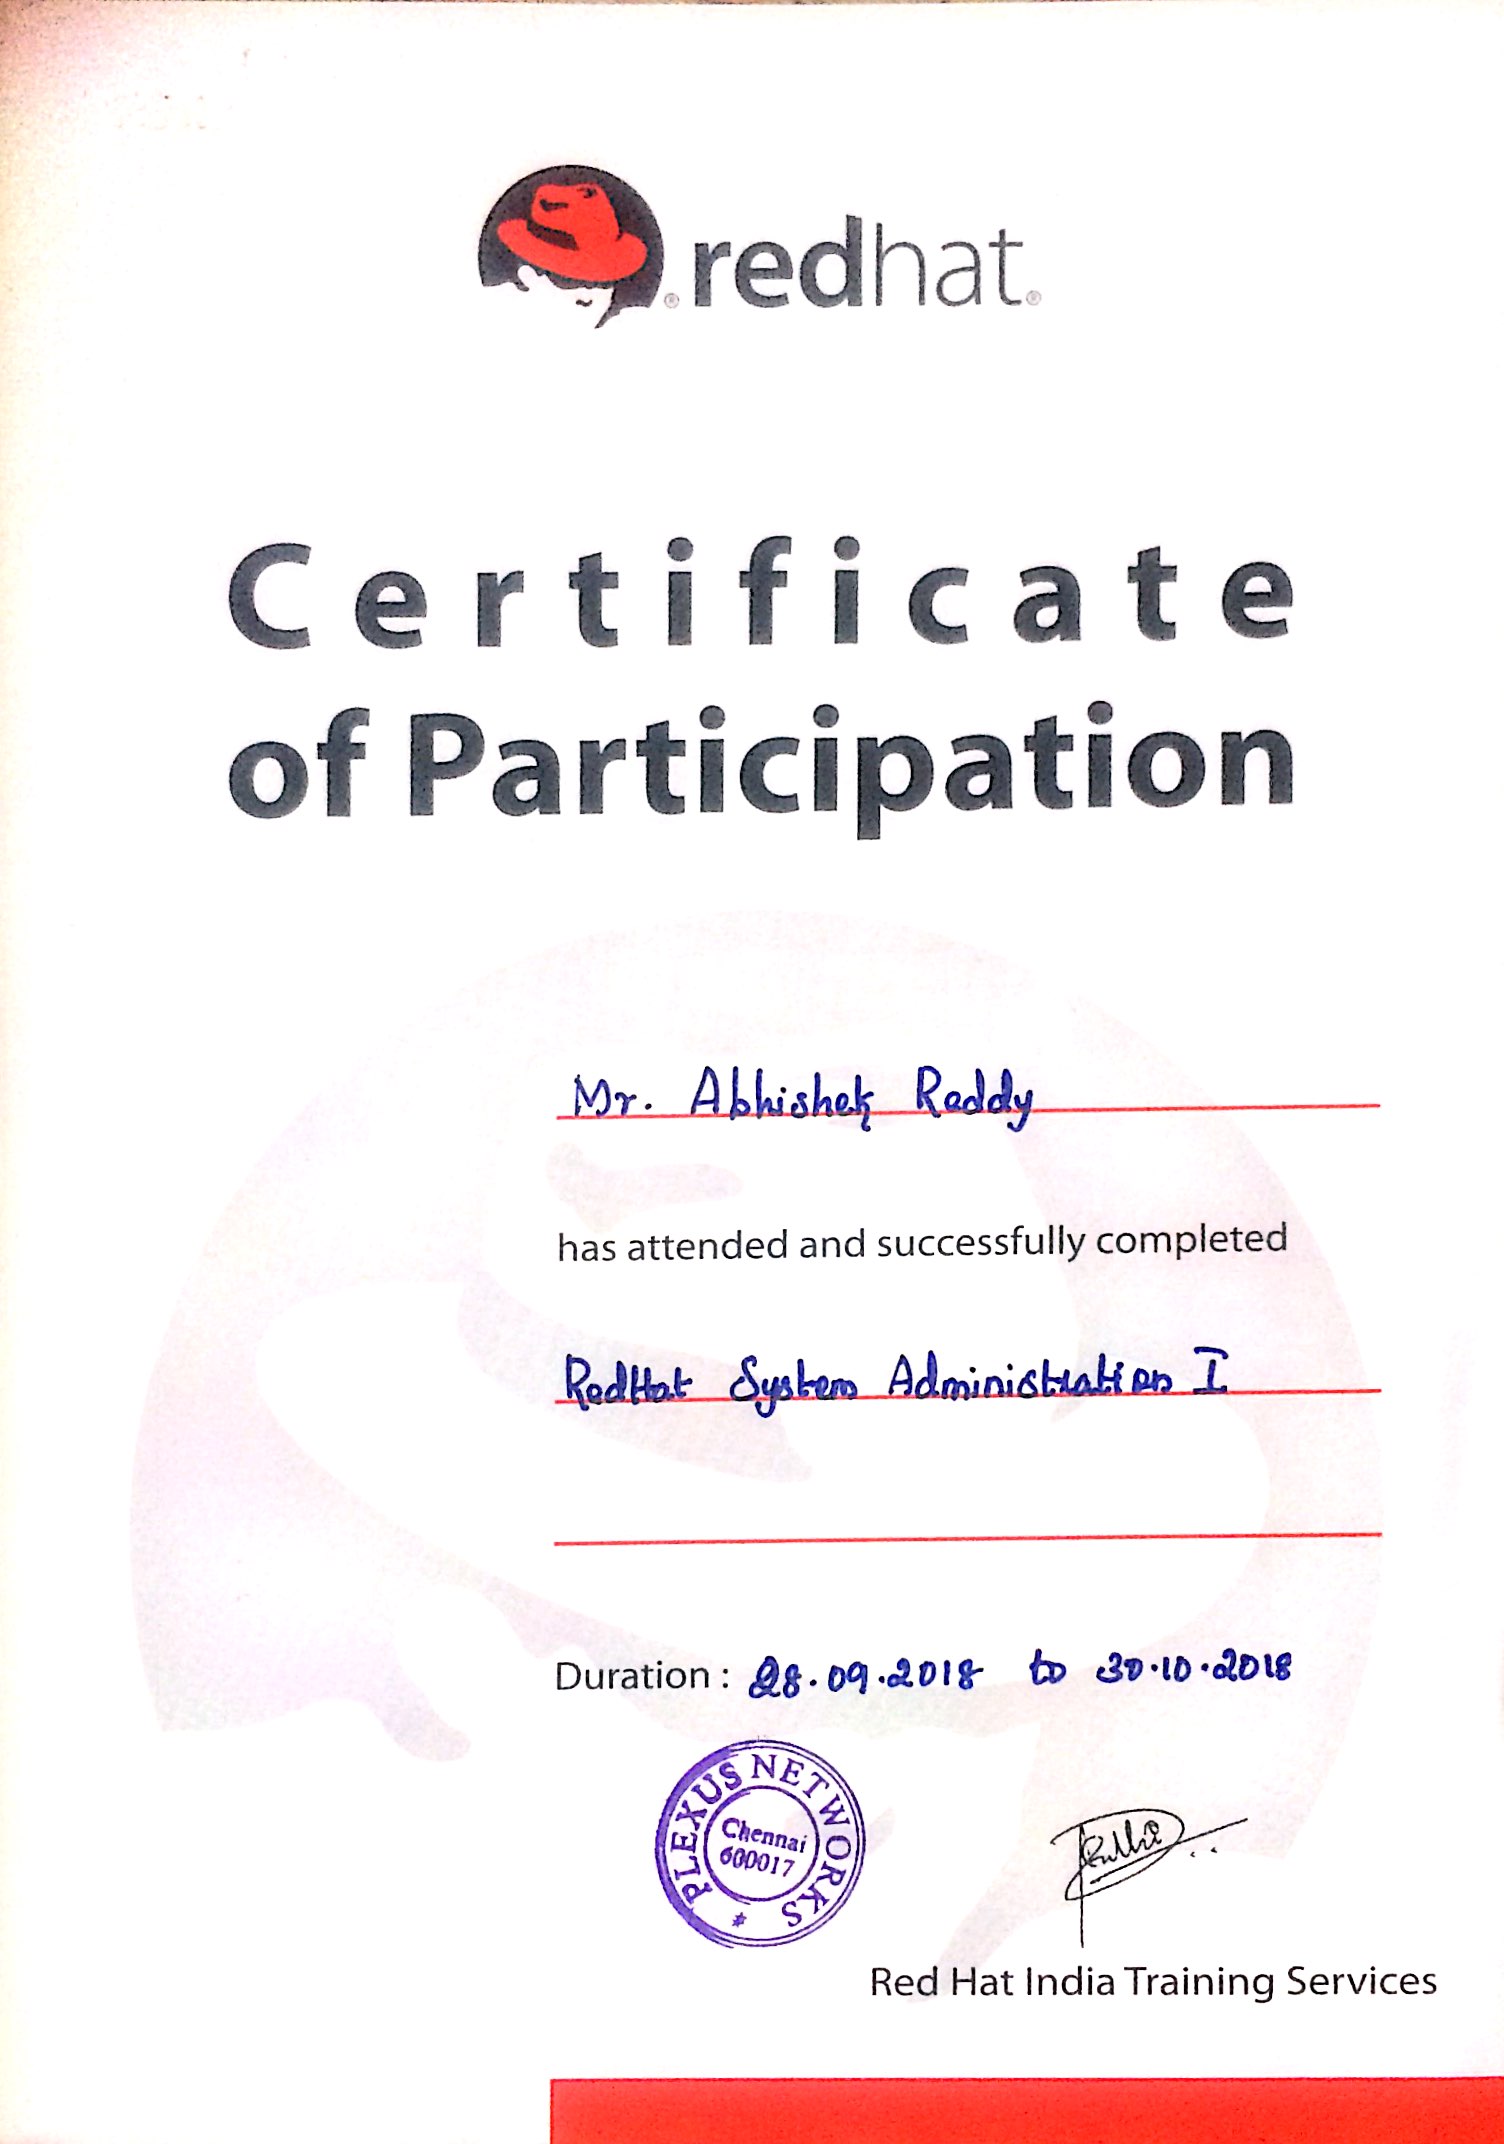 redhat.
Certificate
of Participation
Mr. Abhishek Reddy
has attended and successfully completed
RedHat System Administration I
Duration : 28.09.2018 to 30.10.2018
PLEXUS NETWORKS
Chennai
600017
Red Hat India Training Services